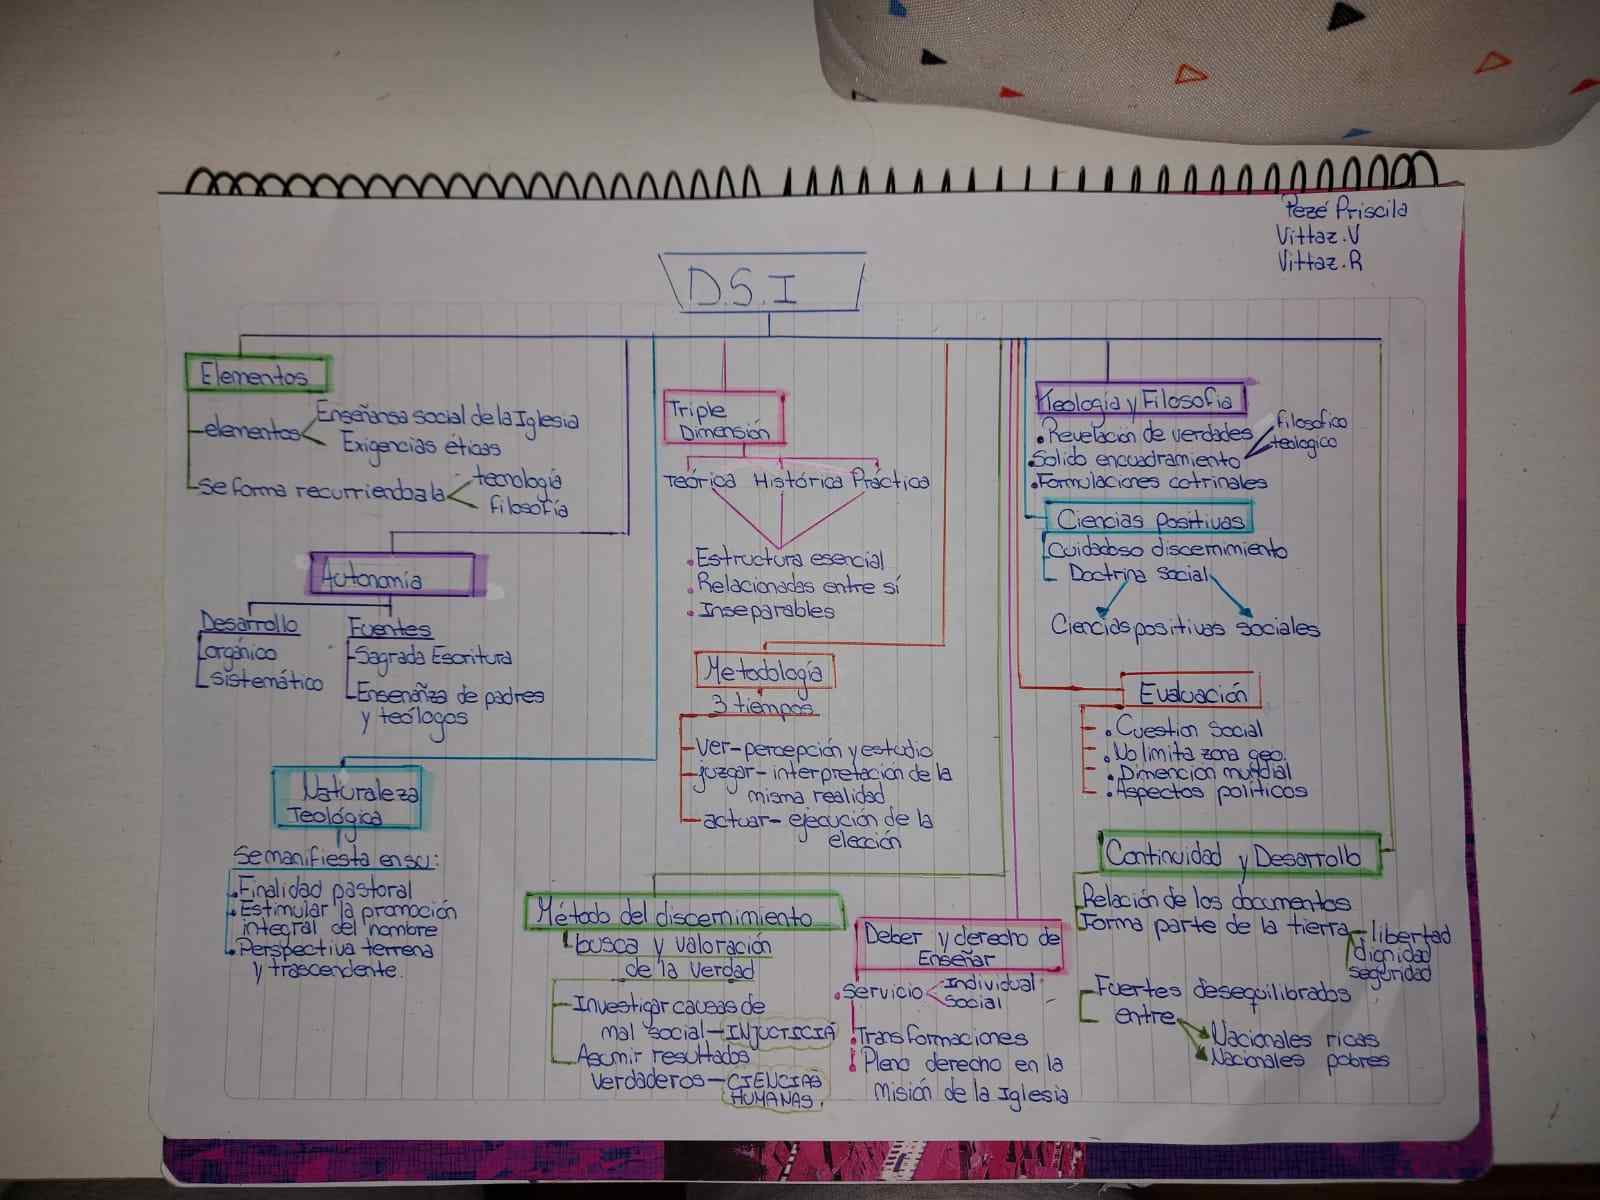 Pezé Priscila
Vittaz.V
Vittaz.R
D.S.I
Elementos
elementos
Enseñansa social de la Iglesia
Exigencias éticas
se forma recurriendo a la
tecnología
filosofía
Autonomía
Desarrollo
orgánico
sistemático
Fuentes
Sagrada Escritura
Enseñanza de padres
y teólogos
Naturaleza
Teológica
Se manifiesta en su:
Finalidad pastoral
Estimular la promoción
integral del hombre
Perspectiva terrena
y trascendente.
Triple
Dimensión
Teórica Histórica Práctica
Estructura esencial
Relacionadas entre sí
Inseparables
Metodología
3 tiempos
ver-percepción y estudio
juzgar-interpretación de la
misma realidad
actuar-ejecución de la
elección
Método del discernimiento
busca y valoración
de la verdad
Investigar causas de
mal social-INJUCTICIA
Asumir resultados
verdaderos-CIENCIAS
HUMANAS.
Deber y derecho de
Enseñar
servicio
Individual
Social
Transformaciones
Pleno derecho en la
misión de la Iglesia
Teología y Filosofía
Revelación de verdades
Solido encuadramiento
filosofico
teologico
Formulaciones cotrinales
Ciencias positivas
Cuidadoso discernimiento
Doctrina social
Ciencias positivas sociales
Evaluación
Cuestion Social
No limita zona geo.
Dimencion mundial
Aspectos políticos
Continuidad y Desarrollo
Relación de los documentos
Forma parte de la tierra
libertad
dignidad
seguridad
Fuertes desequilibrados
entre
Nacionales ricas
Nacionales pobres